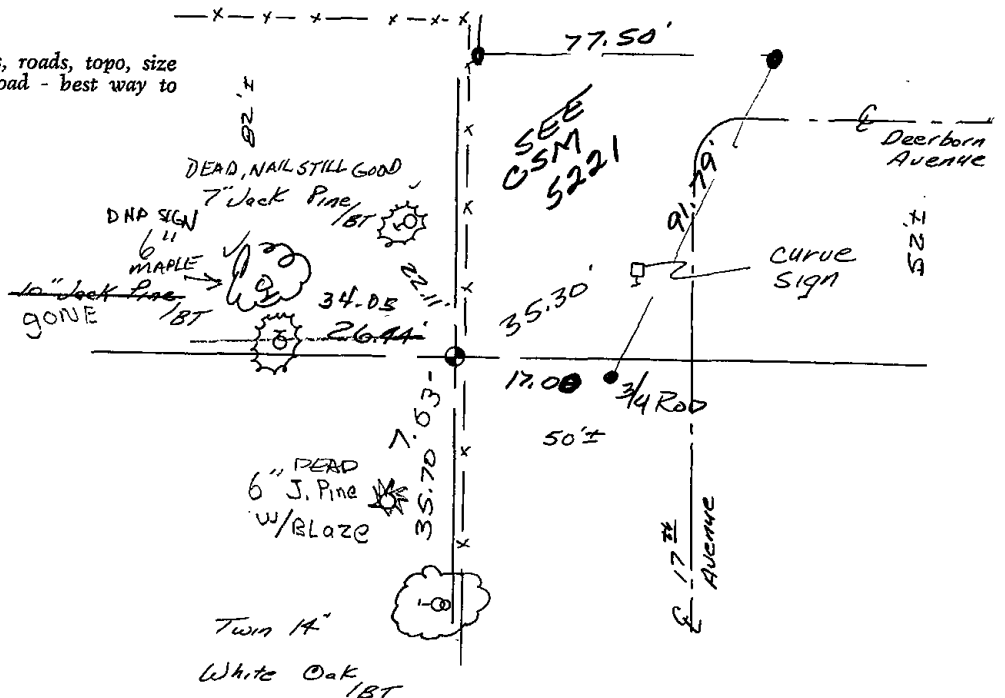 s, roads, topo, size
oad - best way to
82'±
77.50'
SEE
CSM
5221
℄
Deerborn
Avenue
DEAD, NAIL STILL GOOD
7" Jack Pine
/BT
91.79'
52'±
SIGN
6"
MAPLE
10" Jack Pine
/BT
GONE
22.11'
34.05
26.44'
35.30'
curve
sign
17.00
3/4 Rod
50'±
7.63'
35.70
DEAD
6" J. Pine
W/BLaze
℄ 17th
Avenue
Twin 14"
White Oak
/BT